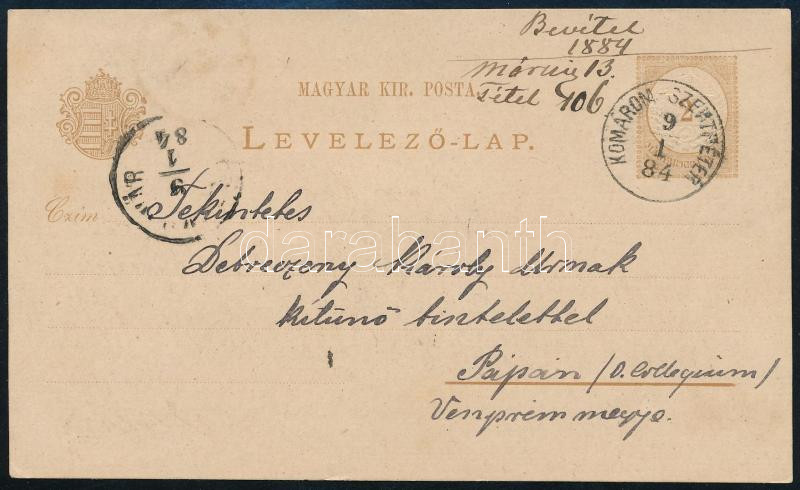 Bevétel
1884
március 13.
Tétel 906
MAGYAR KIR. POSTA
LEVELEZŐ-LAP.
KOMÁROM SZENTPÉTER
9
1
84
9
1
84
Czím
Tekintetes
Debreczeny Károly Urnak
kitünő tisztelettel
Pápán / O. Collegium /
Veszprém megye.
darabanth